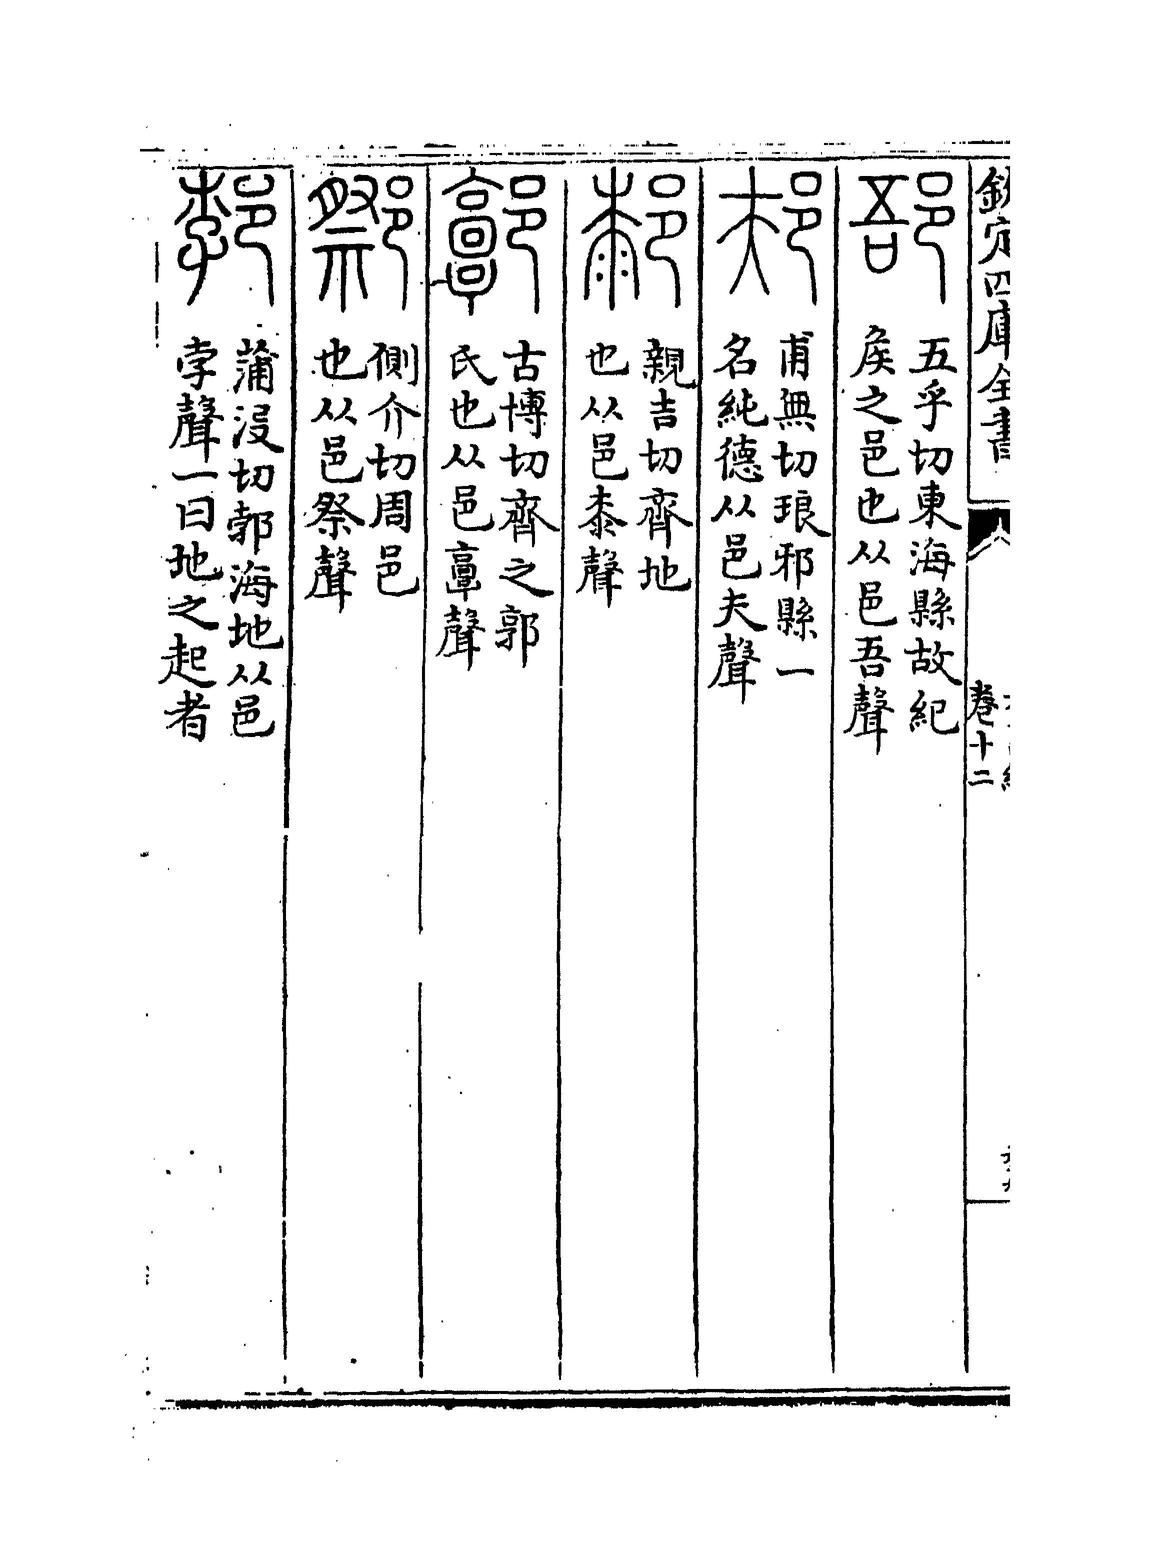 欽定四庫全書
卷十二
郚
五乎切東海縣故紀
矦之邑也从邑吾聲
邞
甫無切琅邪縣一
名純德从邑夫聲
䣛
親吉切齊地
也从邑桼聲
郭
古博切齊之郭
氏也从邑𩫏聲
側介切周邑
也从邑祭聲
郣
蒲沒切郭海地从邑
孛聲一曰地之起者